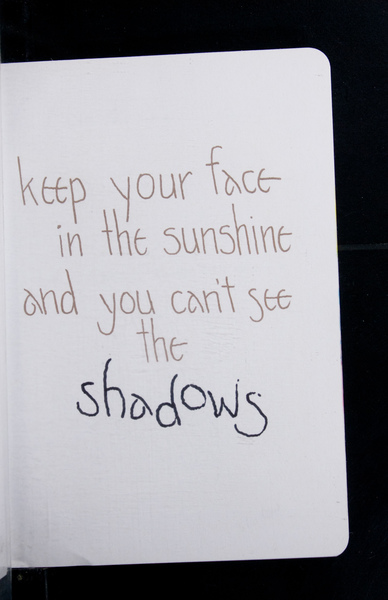 keep your face
in the sunshine
and you can't see
the
shadows